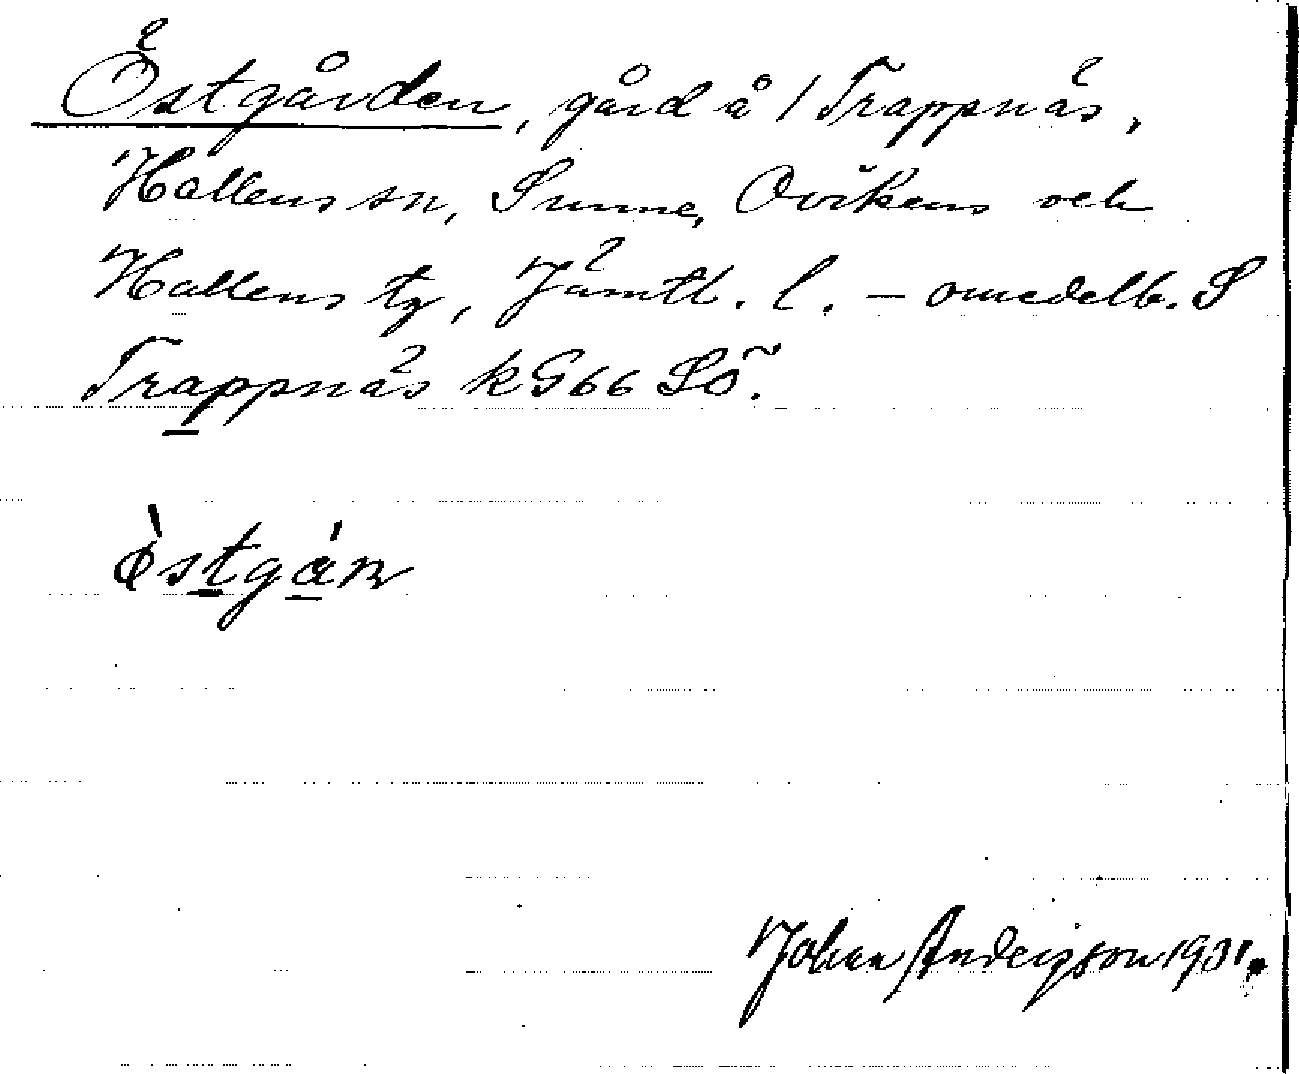 Östgården, gård å 1 Trappnäs,
Hallens sn, Sunne, Ovikens och
Hallens tg, Jämtl. l. – omedelb. S
Trappnäs k G66 SÖ.
Johan Anderzson 1931.